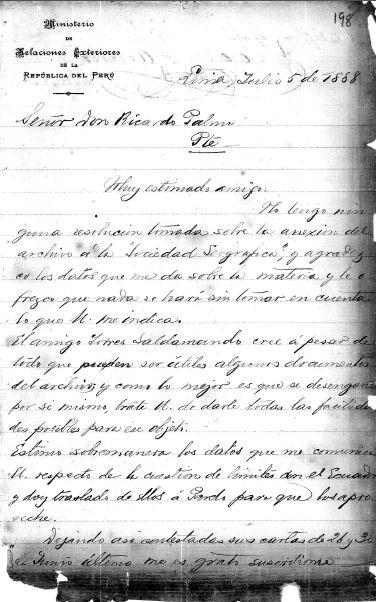 198
Ministerio
DE
Relaciones Exteriores
DE LA
REPÚBLICA DEL PERÚ
Lima, Julio 5 de 1888
Señor don Ricardo Palma
Pte
Muy estimado amigo:
No tengo nin
guna resolución tomada sobre la anexión del
archivo á la "Sociedad Geografica", y agradez
co los datos que me da sobre la materia y le o
frezco que nada se hará sin tomar en cuenta
lo que U. me indica.
El amigo Torres Saldamando cree á pesar de
todo que pueden ser útiles algunos documentos
del archivo; y como lo mejor es que se desengañe
por si mismo, trate U. de darle todas las facilida
des posibles para ese objeto.
Estimo sobremanera los datos que me comunica
U. respecto de la cuestion de límites con el Ecuador
y doy traslado de ellos á Pardo para que los apro
veche.
Dejando asi contestadas sus cartas de 26 y 30
de Junio último me es grato suscribirme